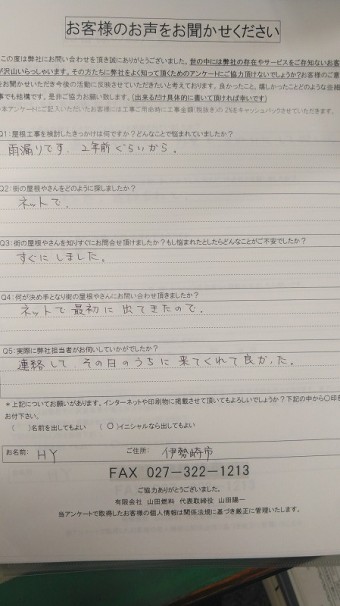 お客様のお声をお聞かせください
この度は弊社にお問い合わせを頂き誠にありがとうございました。世の中には弊社の存在やサービスをご存知ないお客
が沢山いらっしゃいます。その方たちに弊社をよく知って頂くためのアンケートにご協力頂けないでしょうか?お客様のご意
をお聞かせいただき今後の活動に反映させていただきたいと考えております。良かったこと、嬉しかったことどのような些細
事でも結構です。是非ご協力お願い致します。(出来るだけ具体的に書いて頂ければ幸いです)
本アンケートにご記入いただいたお客様には工事ご用命時に工事金額(税抜き)の 2%をキャッシュバックさせていただきます。
Q1:屋根工事を検討したきっかけは何ですか?どんなことで悩まれていましたか?
雨漏りです。2年前ぐらいから。
Q2:街の屋根やさんをどのように探しましたか?
ネットで。
Q3:街の屋根やさんを知りすぐにお問合せ頂けましたか?もし悩まれたとしたらどんなことがご不安でしたか?
すぐにしました。
Q4:何が決め手となり街の屋根やさんにお問い合わせ頂きましたか?
ネットで最初に出てきたので。
Q5:実際に弊社担当者がお伺いしていかがでしたか?
連絡してその日のうちに来てくれて良かった。
*上記についてお願いがあります。インターネットや印刷物に掲載させて頂いてもよろしいでしょうか?下記の中から○印を
お付下さい。
( )名前を出してもよい (○)イニシャルなら出してもよい
お名前: HY ご住所: 伊勢崎市
FAX 027-322-1213
ご協力ありがとうございました。
有限会社 山田燃料 代表取締役 山田陽一
当アンケートで取得したお客様の個人情報は関係法規に基づき厳正に管理いたします。